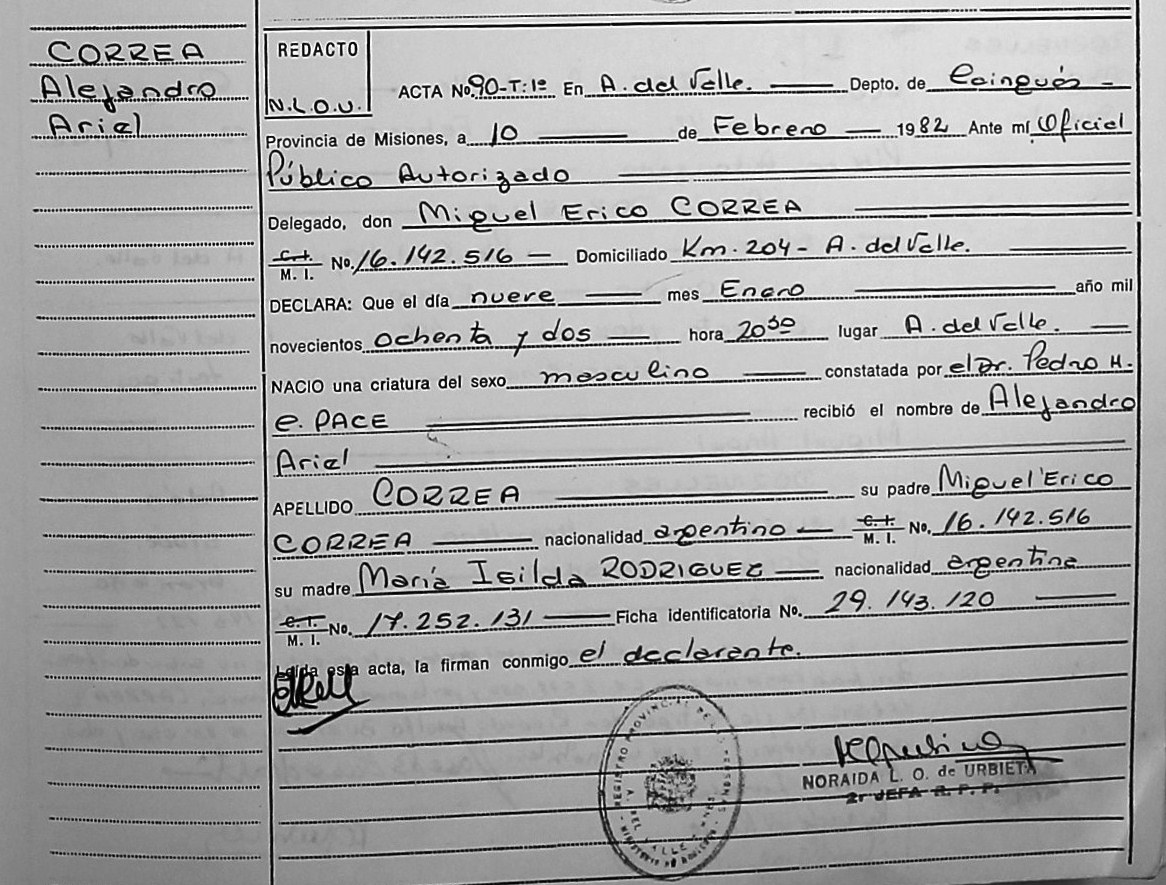 CORREA
Alejandro
Ariel
REDACTO
N.L.O.U.
ACTA No. 90-T:1º En A. del Valle. Depto. de Cainguás
Provincia de Misiones, a 10 de Febrero 1982 Ante mí, Oficial
Público Autorizado
Delegado, don Miguel Erico CORREA
C.I.
M. I. No. 16.142.516 Domiciliado Km. 204 - A. del Valle.
DECLARA: Que el día nueve mes Enero año mil
novecientos ochenta y dos hora 20³⁰ lugar A. del Valle.
NACIO una criatura del sexo masculino constatada por el Dr. Pedro H.
e. PACE recibió el nombre de Alejandro
Ariel
APELLIDO CORREA su padre Miguel Erico
CORREA nacionalidad argentino C.I.
M. I. No. 16.142.516
su madre María Isilda RODRIGUEZ nacionalidad argentina
C.I.
M. I. No. 17.252.131 Ficha identificatoria No. 29.143.120
Leída esta acta, la firman conmigo el declarante.
REGISTRO PROVINCIAL PERSONAS
DEL VALLE
NORAIDA L. O. de URBIETA
2r JEFA R. P. P.